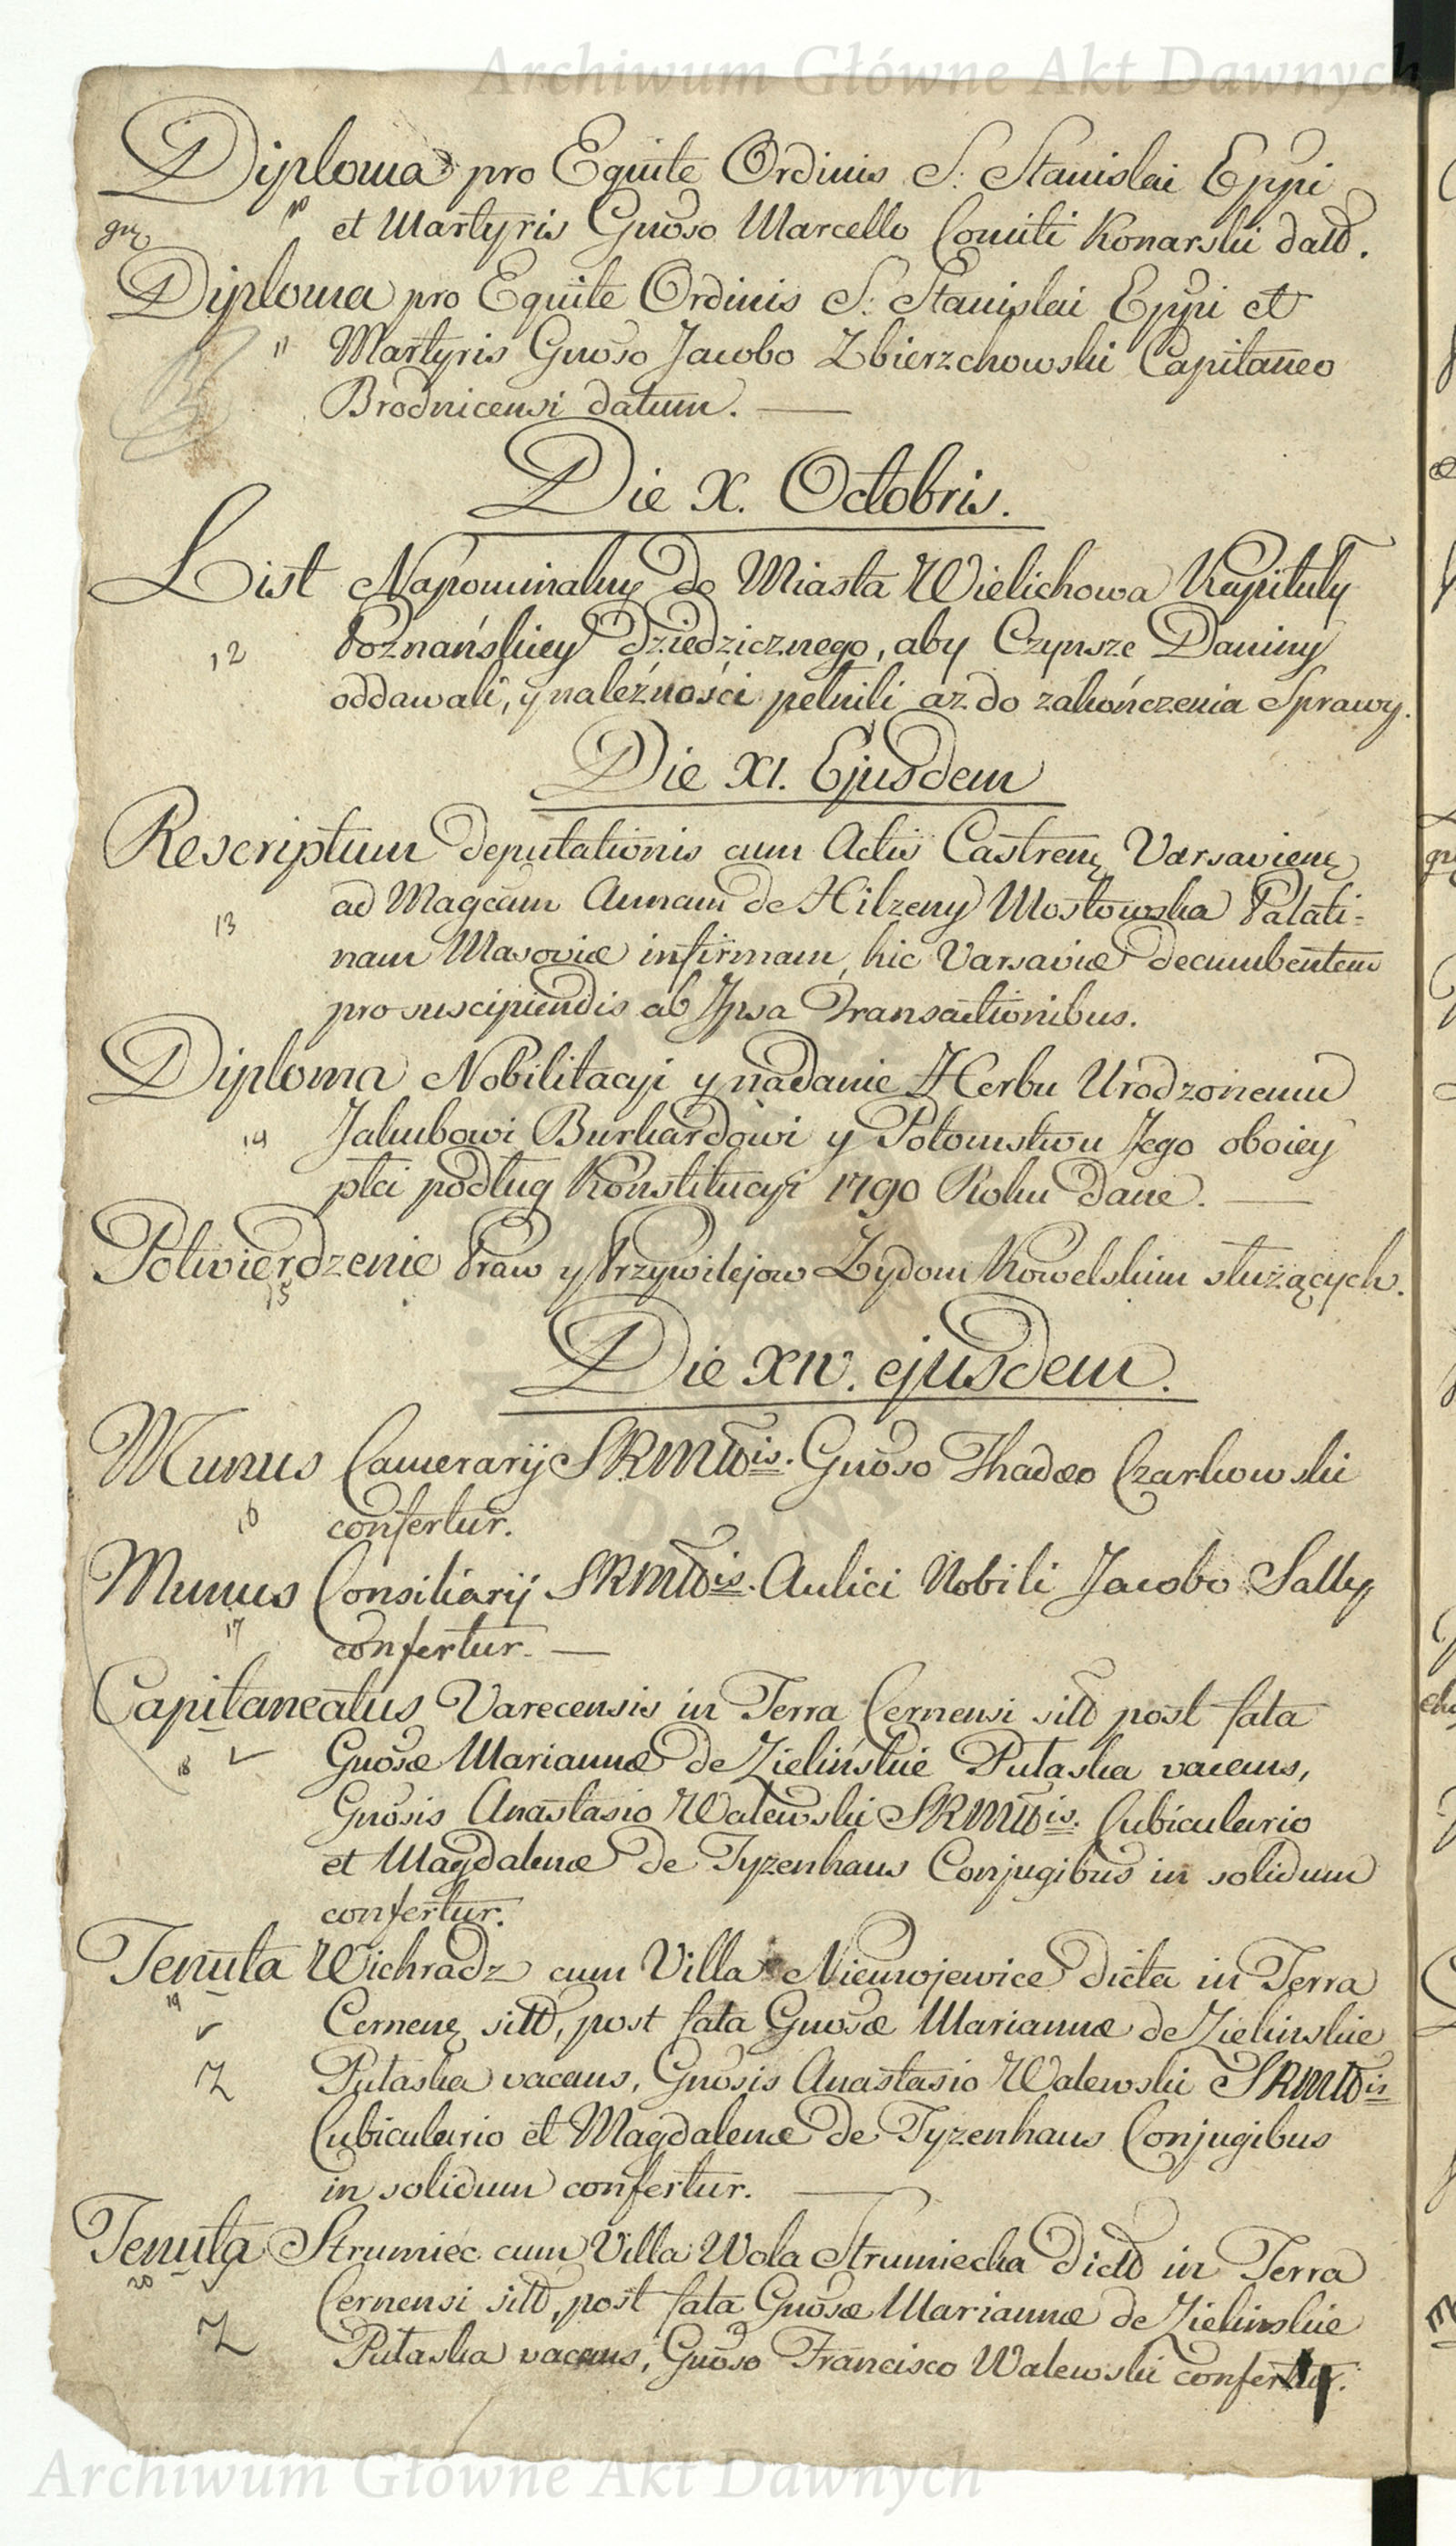 Archiwum Główne Akt Dawnych
Diploma pro Equite Ordinis S: Stanislai Eppi
10 et Martyris Gnoso Marcello Comiti Konarski datt.
Diploma pro Equite Ordinis S: Stanislai Eppi et
11 Martyris Gnoso Jacobo Zbierzchowski Capitaneo
Brodnicensi datum. —
Die X. Octobris.
List Napominalny do Miasta Wielichowa Kapituły
12 Poznańskiey dziedzicznego, aby Czynsze Daniny
oddawali, y należności pełnili aż do zakończenia Sprawy.
Die XI. Ejusdem
Rescriptum deputationis cum Actis Castren Varsavien
13 ad Magcam Annam de Hilzeny Mostowska Palati=
nam Masoviæ infirmam, hic Varsaviæ decumbentem
pro suscipiendis ab Ipsa Transactionibus.
Diploma Nobilitacyi y nadanie Herbu Urodzonemu
14 Jakubowi Burhardowi y Potomstwu Jego oboiey
płci podług Konstitucyi 1790 Roku dane. —
Potwierdzenie Praw y Przywilejow Żydom Kowelskim służących.
15
Die XIV. ejusdem.
Munus Camerarij SRMttis. Gnoso Thadæo Czarkowski
16 confertur.
Munus Consiliarij SRMttis. Aulici Nobili Jacobo Sally
17 confertur. —
Capitaneatus Varecensis in Terra Cernensi sitt post fata
18 Gnosæ Mariannæ de Zielińskie Pułaska vacans,
Gnosis Anastasio Walewski SRMttis. Cubiculario
et Magdalenæ de Tyzenhaus Conjugibus in solidum
confertur.
Tenuta Wichradz cum Villa Niemojewice dicta in Terra
19 Cernen sitt, post fata Gnosæ Mariannæ de Zielinskie
Pułaska vacans, Gnosis Anastasio Walewski SRMttis
Cubiculario et Magdalenæ de Tyzenhaus Conjugibus
in solidum confertur. —
Tenuta Strumiec cum Villa Wola Strumiecka dictt in Terra
20 Cernensi sitt, post fata Gnosæ Mariannæ de Zielinskie
Pułaska vacans, Gnoso Francisco Walewski confertur.
Archiwum Główne Akt Dawnych